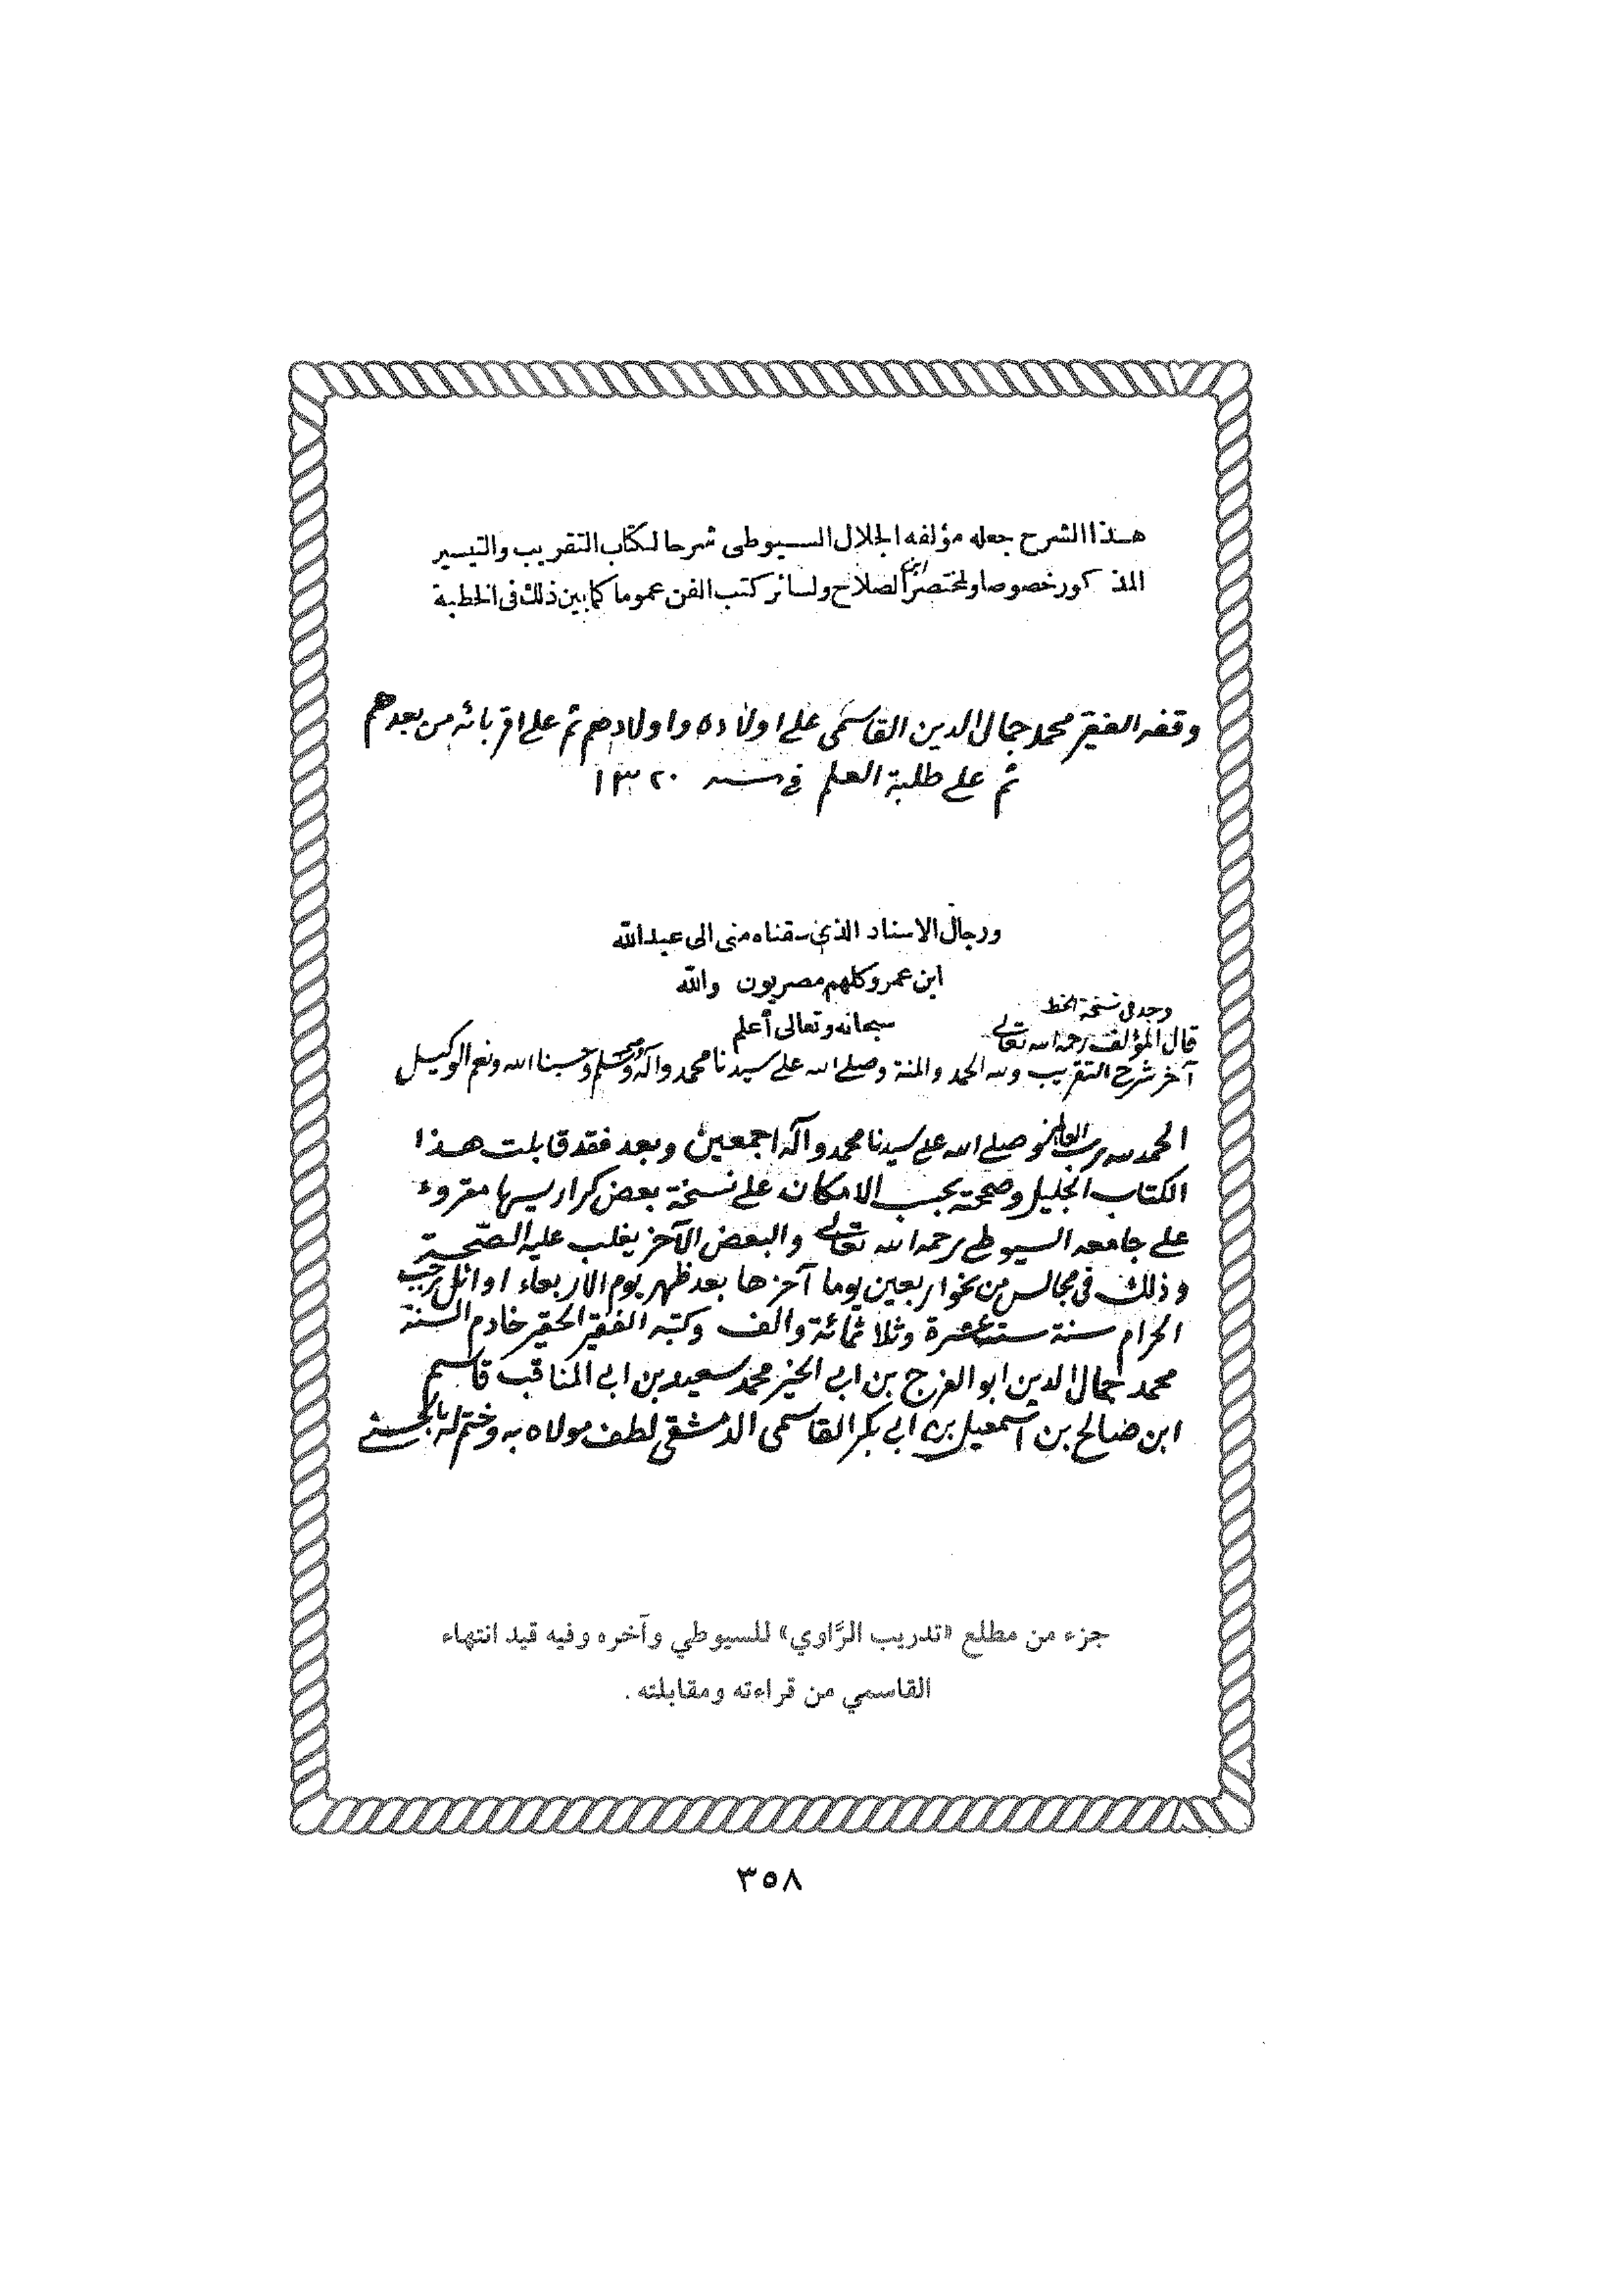 هذا الشرح جعله مؤلفه الجلال السيوطى شرحا لكتاب التقريب والتيسير
المذكور خصوصا ولمختصر ابن الصلاح ولسائر كتب الفن عموما كما بين ذلك فى الخطبة
وقفه الفقير محمد جمال الدين القاسمى على اولاده واولادهم ثم على اقربائه من بعدهم
ثم على طلبة العلم في سنه ١٣٢٠
ورجال الاسناد الذى سقناه منى الى عبد الله
ابن عمرو كلهم مصريون والله
سبحانه وتعالى أعلم
وجد فى نسخة الخط
قال المؤلف رحمه الله تعالى
آخر شرح التقريب ولله الحمد والمنة وصلى الله على سيدنا محمد وآله وصحبه وسلم وحسبنا الله ونعم الوكيل
الحمد لله رب العالمين وصلى الله على سيدنا محمد وآله اجمعين وبعد فقد قابلت هذا
الكتاب الجليل وصححته بحسب الامكان على نسخة بعض كراريسها مقروء
على جامعه السيوطى رحمه الله تعالى والبعض الآخر يغلب عليه الصحة
وذلك فى مجالس من نحو اربعين يوما آخرها بعد ظهر يوم الاربعاء اوائل رجب
الحرام سنة ست عشرة وثلاثمائة والف وكتبه الفقير الحقير خادم السنة
محمد جمال الدين ابو الفرج بن ابي الخير محمد سعيد بن ابي المناقب قاسم
ابن صالح بن اسمعيل بن ابي بكر القاسمى الدمشقى لطف مولاه به وختم له بالحسنى
جزء من مطلع «تدريب الرَّاوي» للسيوطي وآخره وفيه قيد انتهاء
القاسمي من قراءته ومقابلته .
٣٥٨